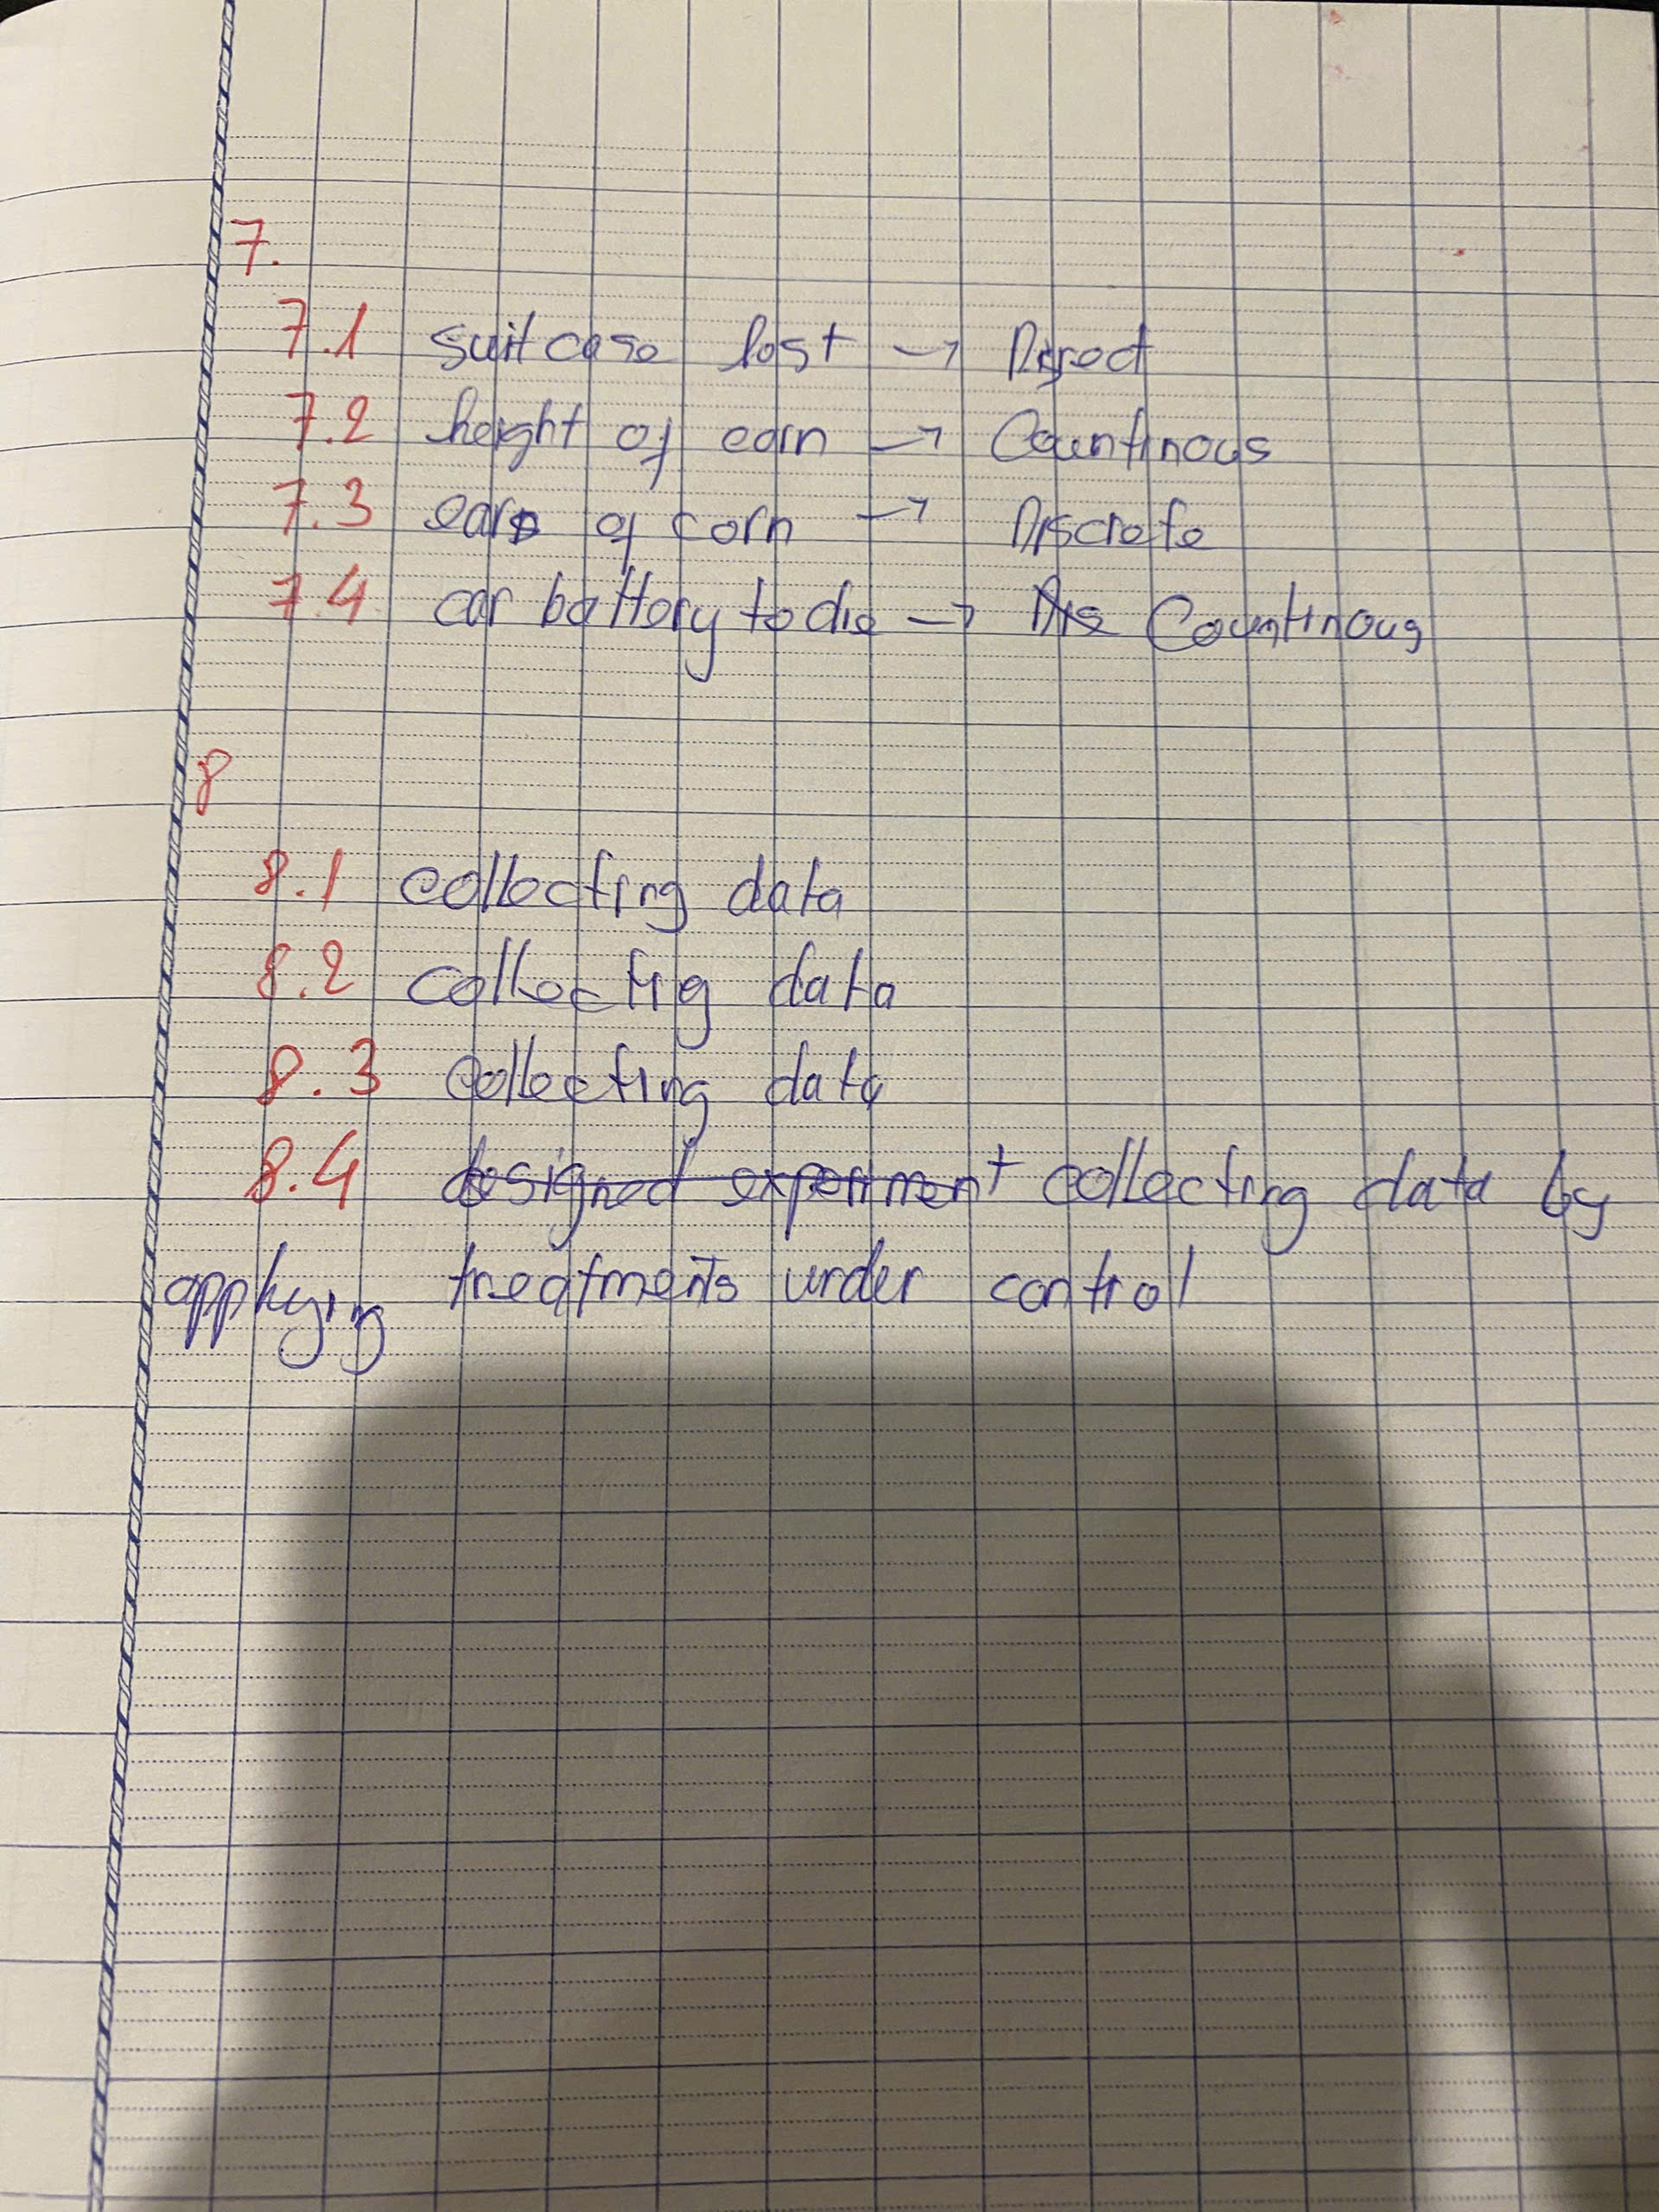 7.
7.1 suitcase lost →
7.2 height of corn → Countinous
7.3 ears of corn → Discrete
7.4 car battery to die → Dis Countinous
8
8.1 collecting data
8.2 collectig data
8.3 collecting data
8.4 designed experiment collecting data by
applying treatments under control